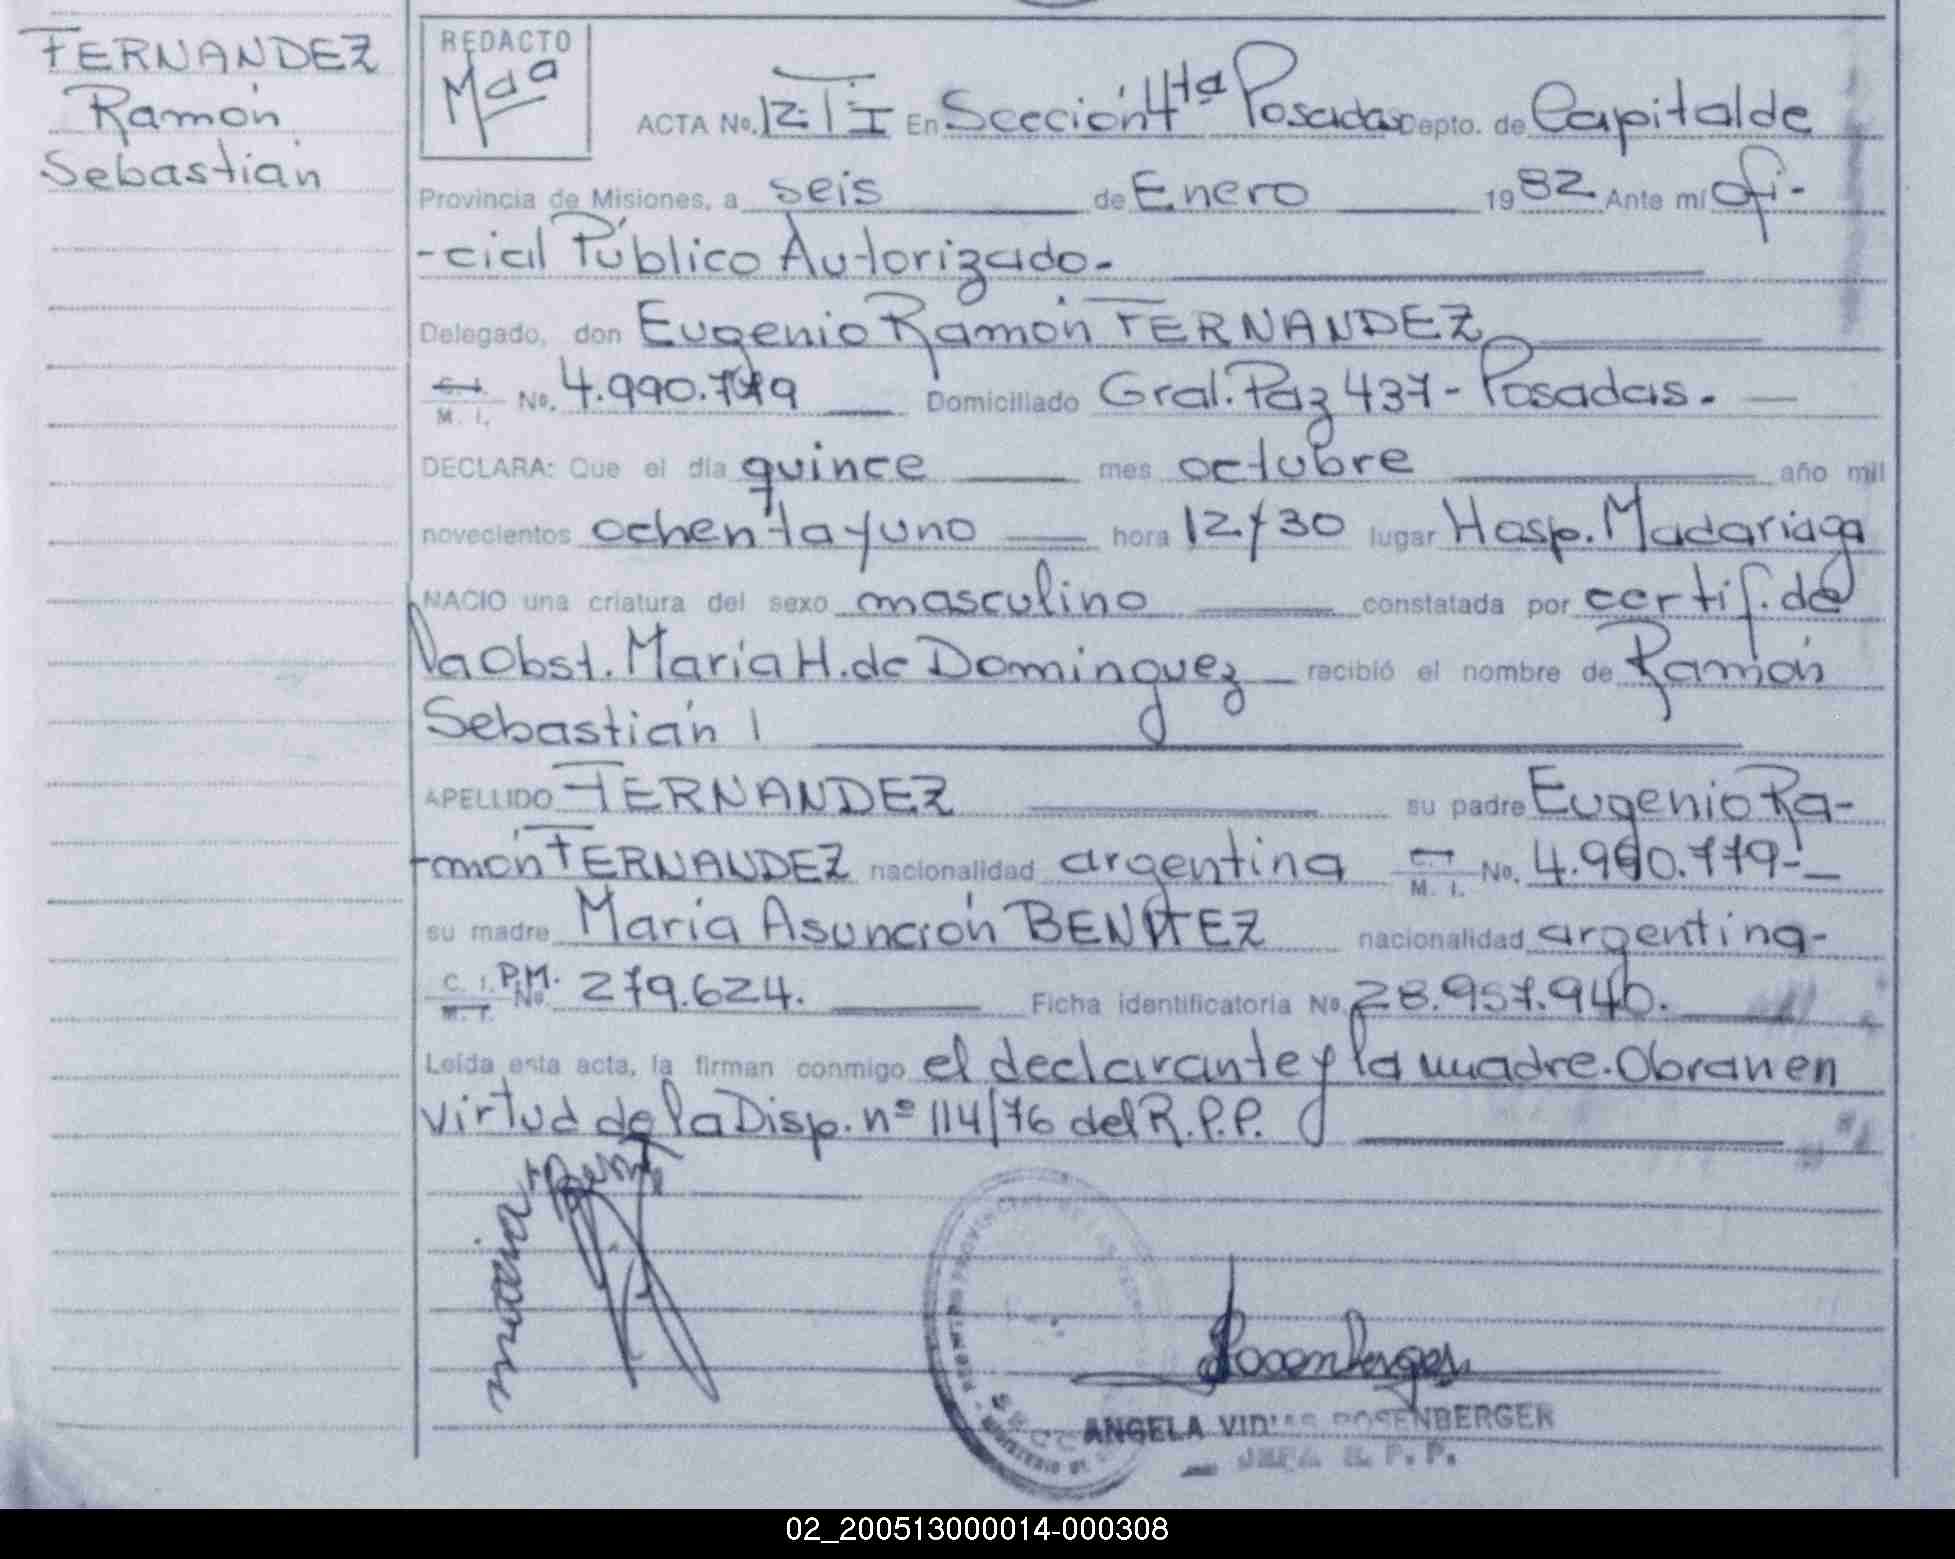 FERNANDEZ
Ramón
Sebastián
REDACTO
Mª
ACTA No. 12-T I En Sección 4ta Posadas Depto. de Capital de
Provincia de Misiones, a seis de Enero 1982 Ante mí ofi-
-cial Público Autorizado.-
Delegado, don Eugenio Ramón FERNANDEZ
C. I. M. I. No. 4.990.779 Domiciliado Gral. Paz 437 - Posadas.-
DECLARA: Que el día quince mes octubre año mil
novecientos ochenta y uno hora 12/30 lugar Hosp. Madariaga
NACIO una criatura del sexo masculino constatada por certif. de
la Obst. María H. de Dominguez recibió el nombre de Ramón
Sebastián
APELLIDO FERNANDEZ su padre Eugenio Ra-
-món FERNANDEZ nacionalidad argentina C. I. M. I. No. 4.990.779-
su madre María Asunción BENITEZ nacionalidad argentina-
C. I. P.M. M. I. No. 279.624. Ficha identificatoria No. 28.957.940.
Leída esta acta, la firman conmigo el declarante y la madre. Obran en
virtud de la Disp. nº 114/76 del R.P.P.
ANGELA ROSENBERGER
JEFA R. P. P.
02_200513000014-000308